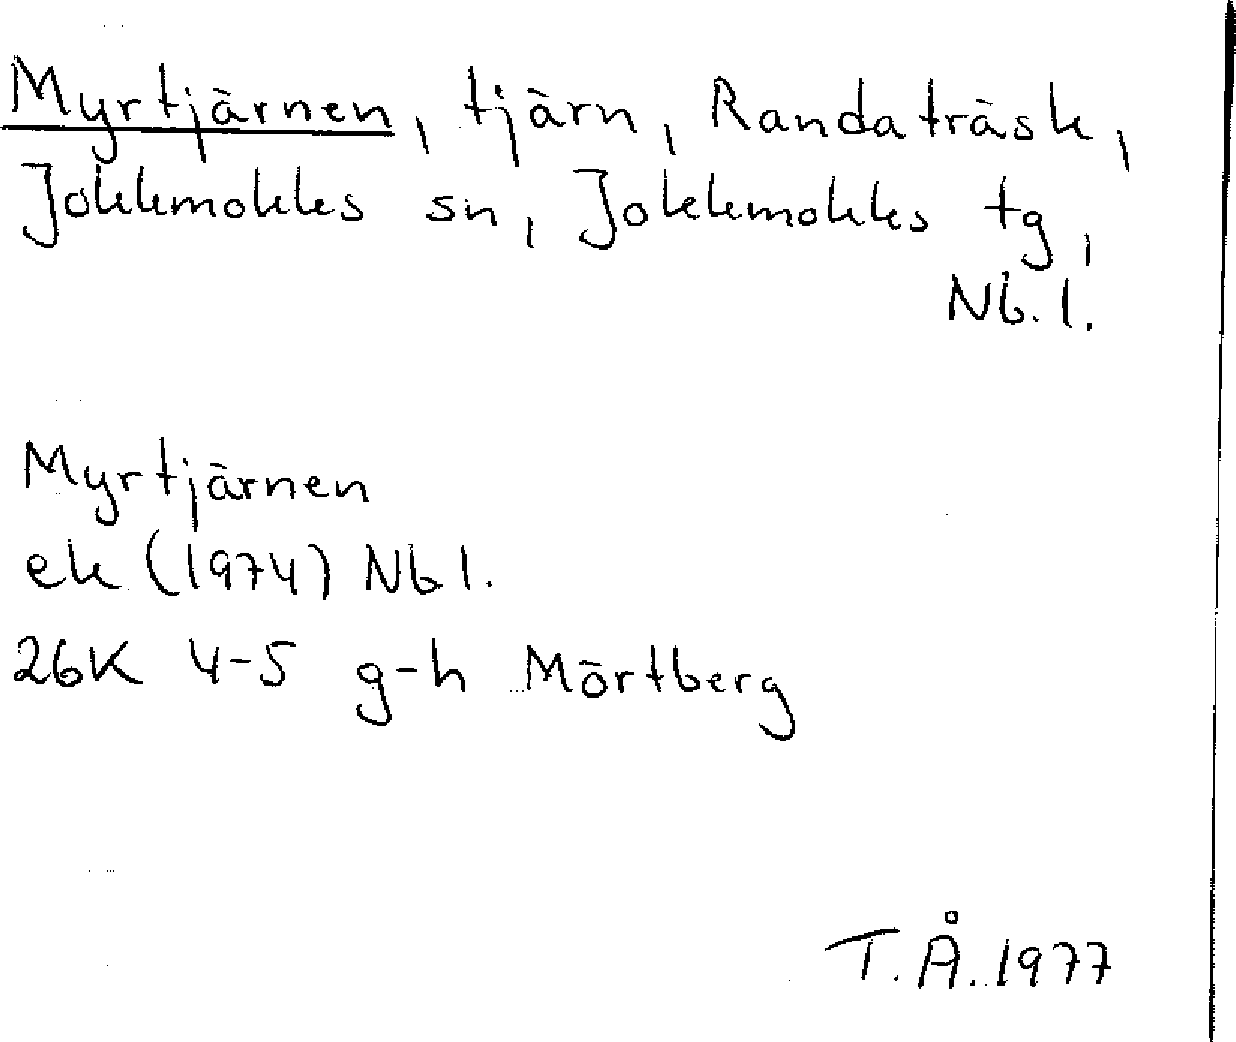 Myrtjärnen, tjärn, Randaträsk,
Jokkmokks sn, Jokkmokks tg,
Nb. l.
Myrtjärnen
ek (1974) Nb l.
26K 4-5 g-h Mörtberg
T. Å. 1977